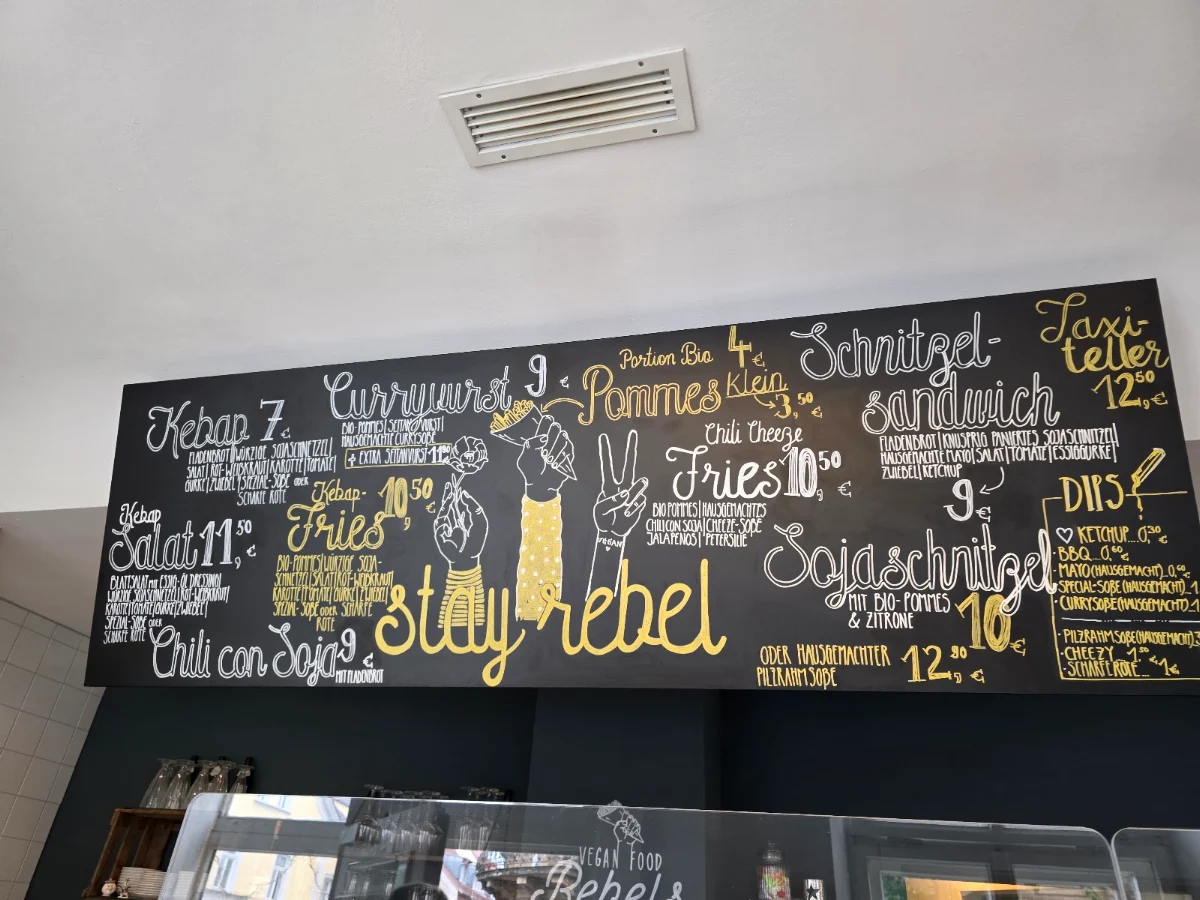 Kebap 7€
FLADENBROT|WÜRZIGE SOJASCHNETZEL|
SALAT|ROT-WEIßKRAUT|KAROTTE|TOMATE|
GURKE|ZWIEBEL|SPEZIAL-SOßE ODER
SCHARFE ROTE
Currywurst 9€
BIO-POMMES|SEITANWURST|
HAUSGEMACHTE CURRYSOßE
+ EXTRA SEITANWURST 11,80
Portion Bio 4€
Pommes Klein
3,50€
Schnitzel-
sandwich
FLADENBROT|KNUSPRIG PANIERTES SOJASCHNITZEL|
HAUSGEMACHTE MAYO|SALAT|TOMATE|ESSIGGURKE|
ZWIEBEL|KETCHUP
9€
Taxi-
teller
12,50€
Kebap
Salat 11,50€
BLATTSALAT MIT ESSIG-ÖL DRESSING|
WÜRZIGE SOJASCHNETZEL|ROT-WEIßKRAUT|
KAROTTE|TOMATE|GURKE|ZWIEBEL|
SPEZIAL-SOßE ODER
SCHARFE ROTE
Kebap-
Fries 10,50€
BIO-POMMES|WÜRZIGE SOJA-
SCHNETZEL|SALAT|ROT-WEIßKRAUT|
KAROTTE|TOMATE|GURKE|ZWIEBEL|
SPEZIAL-SOßE ODER SCHARFE
ROTE
Chili Cheeze
Fries 10,50€
BIO POMMES|HAUSGEMACHTES
CHILI CON SOJA|CHEEZE-SOßE
JALAPENOS|PETERSILIE
VEGAN
stay rebel
Chili con Soja 9€
MIT FLADENBROT
Sojaschnitzel
MIT BIO-POMMES
& ZITRONE
10€
ODER HAUSGEMACHTER
PILZRAHMSOßE
12,90€
DIPS
KETCHUP...0,30
BBQ...0,60€
MAYO(HAUSGEMACHT)..0,60€
SPECIAL-SOßE(HAUSGEMACHT)..1
CURRYSOßE(HAUSGEMACHT)..1
·PILZRAHMSOßE(HAUSGEMACHT)
·CHEEZY...1,50€
·SCHARFE ROTE...1€
VEGAN FOOD
Rebels